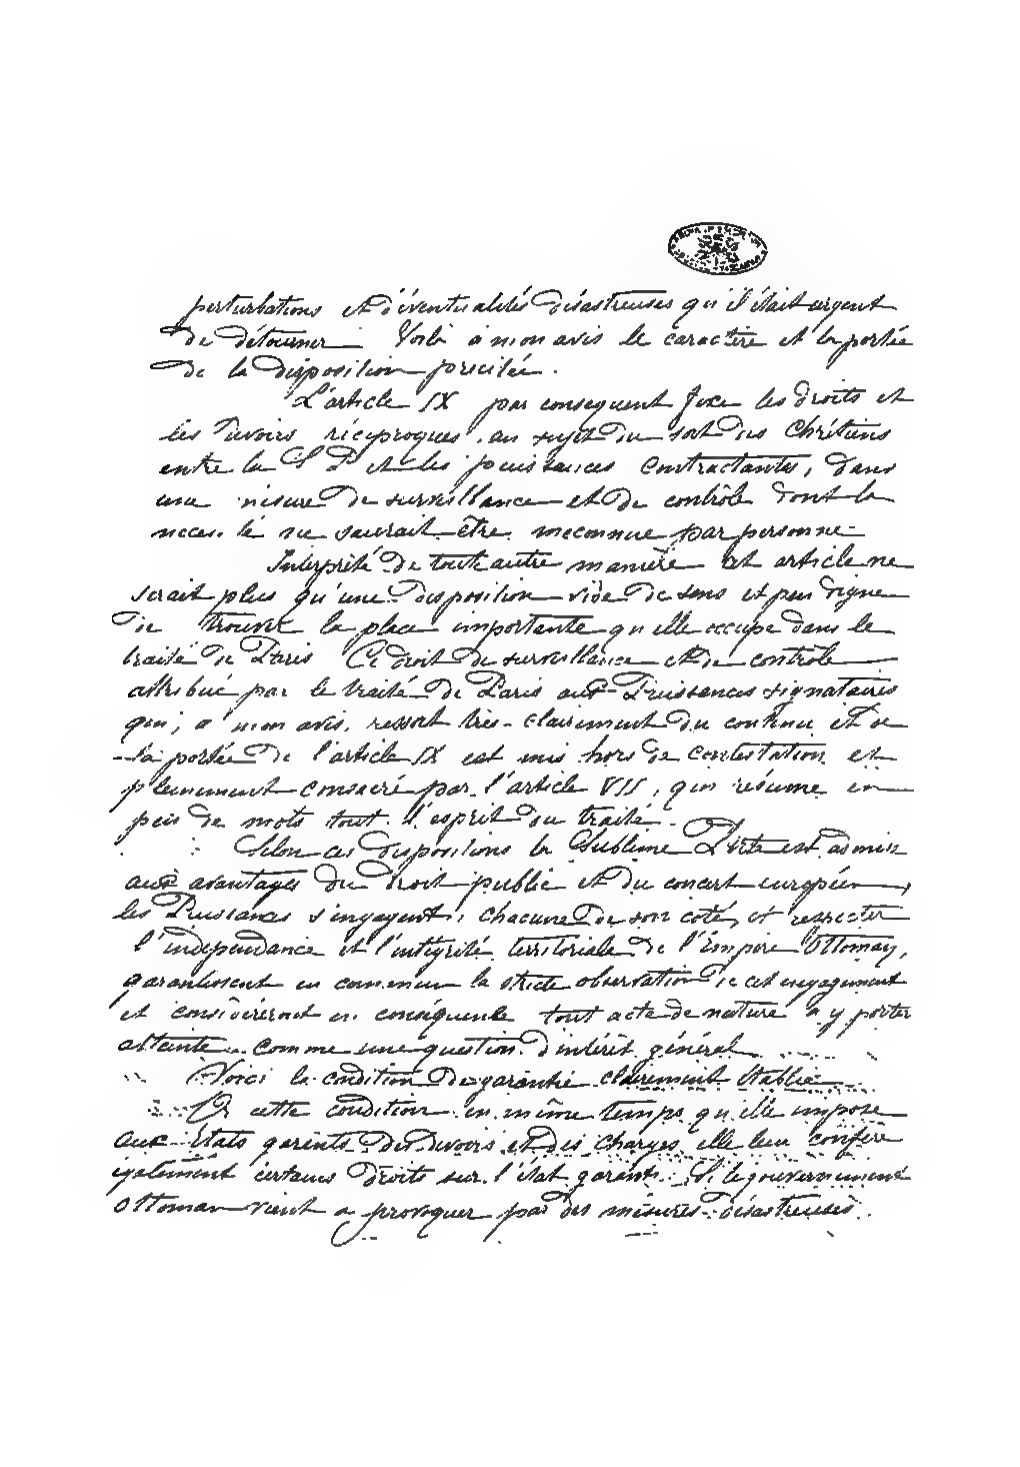 perturbations et d'éventualités désastreuses qu'il était urgent
de détourner. Voilà à mon avis le caractère et la portée
de la disposition précitée.
L'article IX par conséquent fixe les droits et
les devoirs réciproques, au sujet du sort des Chrétiens
entre la S P et les puissances contractantes, dans
une mesure de surveillance et de contrôle dont la
neces. té ne saurait être méconnue par personne
Interprété de toute autre manière cet article ne
serait plus qu'une disposition vide de sens et peu digne
de trouver la place importante qu'elle occupe dans le
traité de Paris Ce droit de surveillance et de contrôle
attribué par le traité de Paris aux Puissances signataires
qui, a mon avis, ressort très-clairement du contenu et de
la portée de l'article IX est mis hors de contestation et
pleinement consacré par l'article VII, qui résume en
peu de mots tout l'esprit du traité.
Selon ces dispositions la Sublime Porte est admise
aux avantages du droit public et du concert européen,
les Puissances s'engagent, chacune de son coté, et respecter
l'independance et l'intégrité territoriale de l'Empire Ottoman,
garantissent en commun la stricte observation de cet engagement
et considéreront en conséquence tout acte de nature a y porter
atteinte comme une question d'intérêt général
Voici la condition de garantie clairement établie
Or cette condition en même temps qu'elle impose
aux Etats garants des devoirs et des charges, elle leur confère
également certains droits sur l'état garanti. Si le gouvernement
Ottoman vient a provoquer par des mesures désastreuses